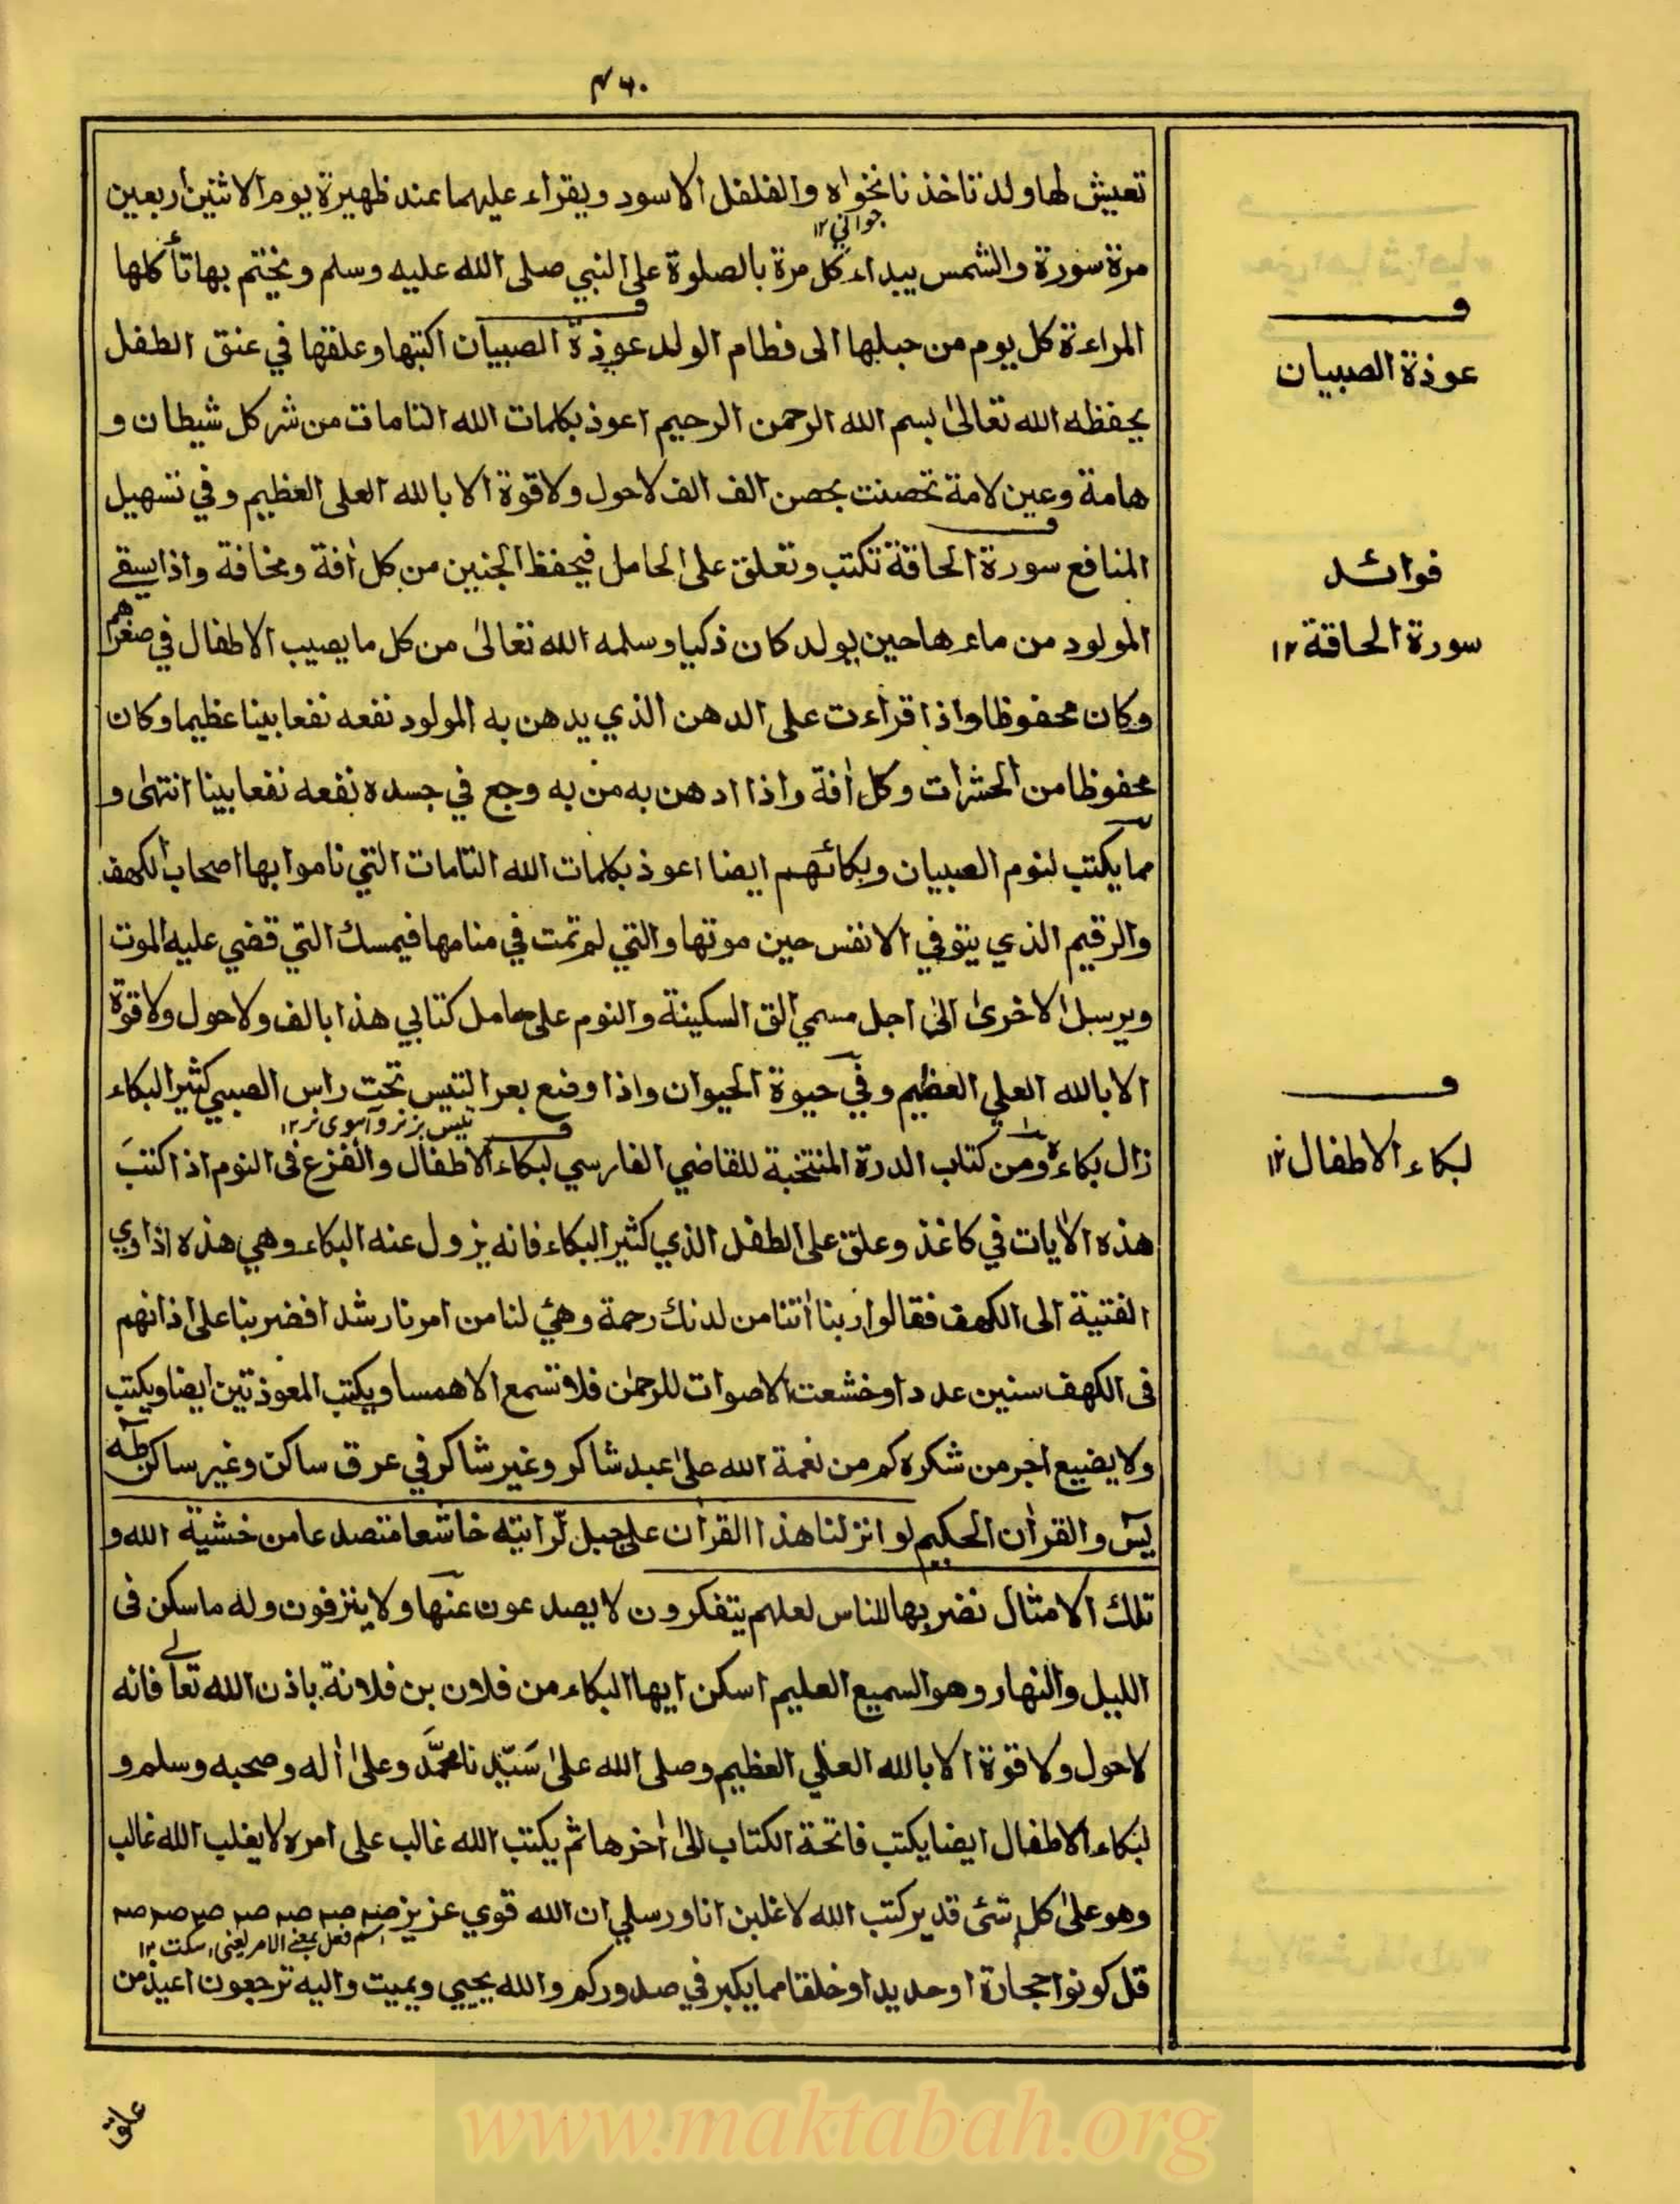 ۴۶۰
تعيش لها ولد تاخذ نانخواه والفلفل الاسود ويقراء عليهما عند ظهيرة يوم الاثنين اربعين
جوانی ۱۲
مرة سورة والشمس يبداء كل مرة بالصلوة على النبي صلى الله عليه وسلم ويختم بها تأكلها
المراءة كل يوم من حبلها الى فطام الولد عوذة الصبيان اكتبها وعلقها في عنق الطفل
يحفظه الله تعالىٰ بسم الله الرحمن الرحيم اعوذ بكلمات الله التامات من شر كل شيطان و
هامة وعين لامة تحصنت بحصن الف الف لاحول ولا قوة الا بالله العلى العظيم وفي تسهيل
المنافع سورة الحاقة تكتب وتعلق على الحامل فيحفظ الجنين من كل أفة ومخافة واذا يسقے
المولود من ماء ها حين يولد كان ذكيا وسلمه الله تعالىٰ من كل ما يصيب الاطفال في صغرهم
وكان محفوظا واذا قراءت على الدهن الذي يدهن به المولود نفعه نفعا بينا عظيما وكان
محفوظا من الحشرات وكل أفة واذا ادهن به من به وجع في جسده نفعه نفعا بينا انتهٰى و
مما يكتب لنوم الصبيان وبكائهم ايضا اعوذ بكلمات الله التامات التي ناموا بها اصحاب الكهف
والرقيم الذي يتوفي الانفس حين موتها والتي لم تمت في منامها فيمسك التي قضي عليه الموت
ويرسل الاخرىٰ الىٰ اجل مسمي الق السكينة والنوم على حامل كتابي هذا بالف ولاحول ولا قوة
الا بالله العلي العظيم وفي حيوة الحيوان واذا وضع بعر التيس تحت راس الصبي كثير البكاء
تيس بز نر وآهوی نر ۱۲
زال بكاءه ومن كتاب الدرة المنتخبة للقاضي الفارسي لبكاء الاطفال والفزع فى النوم اذا كتبت
هذه الأيات في كاغذ وعلق على الطفل الذي كثير البكاء فانه يزول عنه البكاء وهي هذه اذ اوي
الفتية الى الكهف فقالوا ربنا أتنا من لدنك رحمة وهئ لنا من امرنا رشدا فضربنا على اذانهم
فى الكهف سنين عددا وخشعت الاصوات للرحمٰن فلا تسمع الا همسا ويكتب المعوذتين ايضا ويكتب
ولا يضيع اجر من شكره كم من نعمة الله علىٰ عبد شاكر وغير شاكر في عرق ساكن وغير ساكن طه
يٓسٓ والقرأن الحكيم لو انزلنا هذا القران على جبل لّرايته خاشعا متصدعا من خشية الله و
تلك الامثال نضربها للناس لعلهم يتفكرون لا يصدعون عنها ولا ينزفون وله ما سكن فى
الليل والنهار وهو السميع العليم اسكن ايها البكاء من فلان بن فلانة باذن الله تعالے فانه
لاحول ولا قوة الا بالله العلي العظيم وصلى الله علىٰ سَيّدنا محمَّد وعلىٰ أله وصحبه وسلم و
لبكاء الاطفال ايضا يكتب فاتحة الكتاب الىٰ أخرها ثم يكتب الله غالب على امره لا يغلب الله غالب
وهو علىٰ كل شئ قدير كتب الله لاغلبن انا ورسلي ان الله قوي عزيز صه صه صه صه صه صه صه صه
اسم فعل بمعنے الامر یعنی اسکت ۱۲
قل كونوا حجارة او حديدا او خلقا مما يكبر في صدوركم والله يحيي ويميت واليه ترجعون اعيذ من
عوذة الصبيان
فوائد
سورة الحاقة ۱۲
لبكاء الاطفال ۱۲
علق
www.maktabah.org